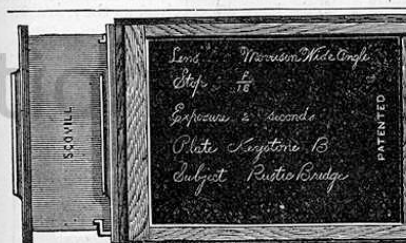 SCOVILL
Lens Morrison Wide Angle
Stop F/18
Exposure 2 seconds
Plate Keystone B
Subject Rustic Bridge
PATENTED